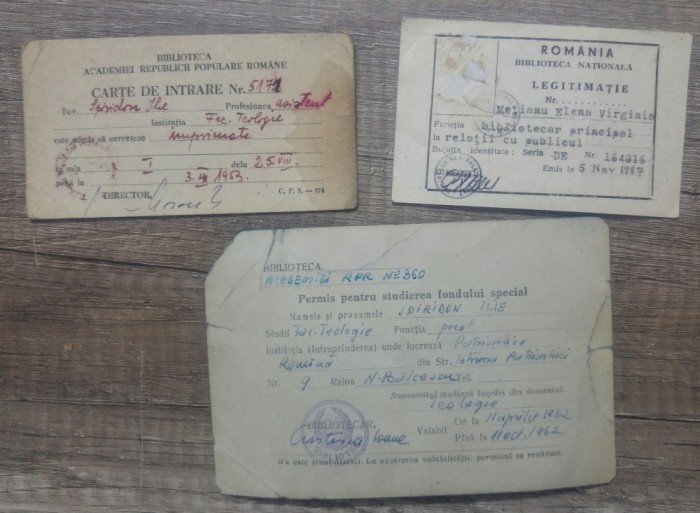 BIBLIOTECA
ACADEMIEI REPUBLICII POPULARE ROMÂNE
CARTE DE INTRARE Nr. 5171
Tov. Spiridon Ilie Profesiunea asistent
Instituția Fac. Teologie
este admis să cerceteze imprimate
în sala I dela 25 VIII.
până la 3. IX 1953.
DIRECTOR,
C. P. S. — 574
ROMÂNIA
BIBLIOTECA NAȚIONALĂ
LEGITIMAȚIE
Nr.
Mețianu Elena Virginia
Funcția bibliotecar principal
la relații cu publicul
Buletin identitate: Seria DE Nr
Emis la 5 Nov
BIBLIOTECA
ACADEMIEI RPR No 360
Permis pentru studierea fondului special
Numele și pronumele SPIRIDON ILIE
Studii Fac. Teologie Funcția preot
Instituția (întreprinderea) unde lucrează Patriarhia
Română din Str. Intrarea Patriarhiei
Nr. 9 Raion N. Bălcescu Tel.
Sus-numitul studiază lucrări din domeniul:
Teologie
BIBLIOTECAR, Valabil De la 11 aprilie 1962
Ioane Pînă la 11 oct. 1962
Nu este transmisibil. La expirarea valabilității, permisul se restituie.